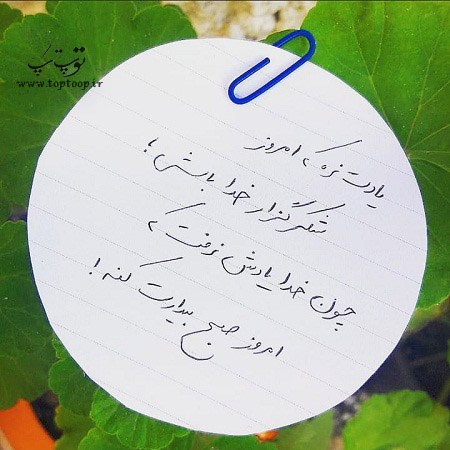 توپ تاپ
www.toptoop.ir
یادت نره که امروز
شکر گزار خدا باشی؛
چون خدا یادش نرفت که
امروز صبح بیدارت کنه!